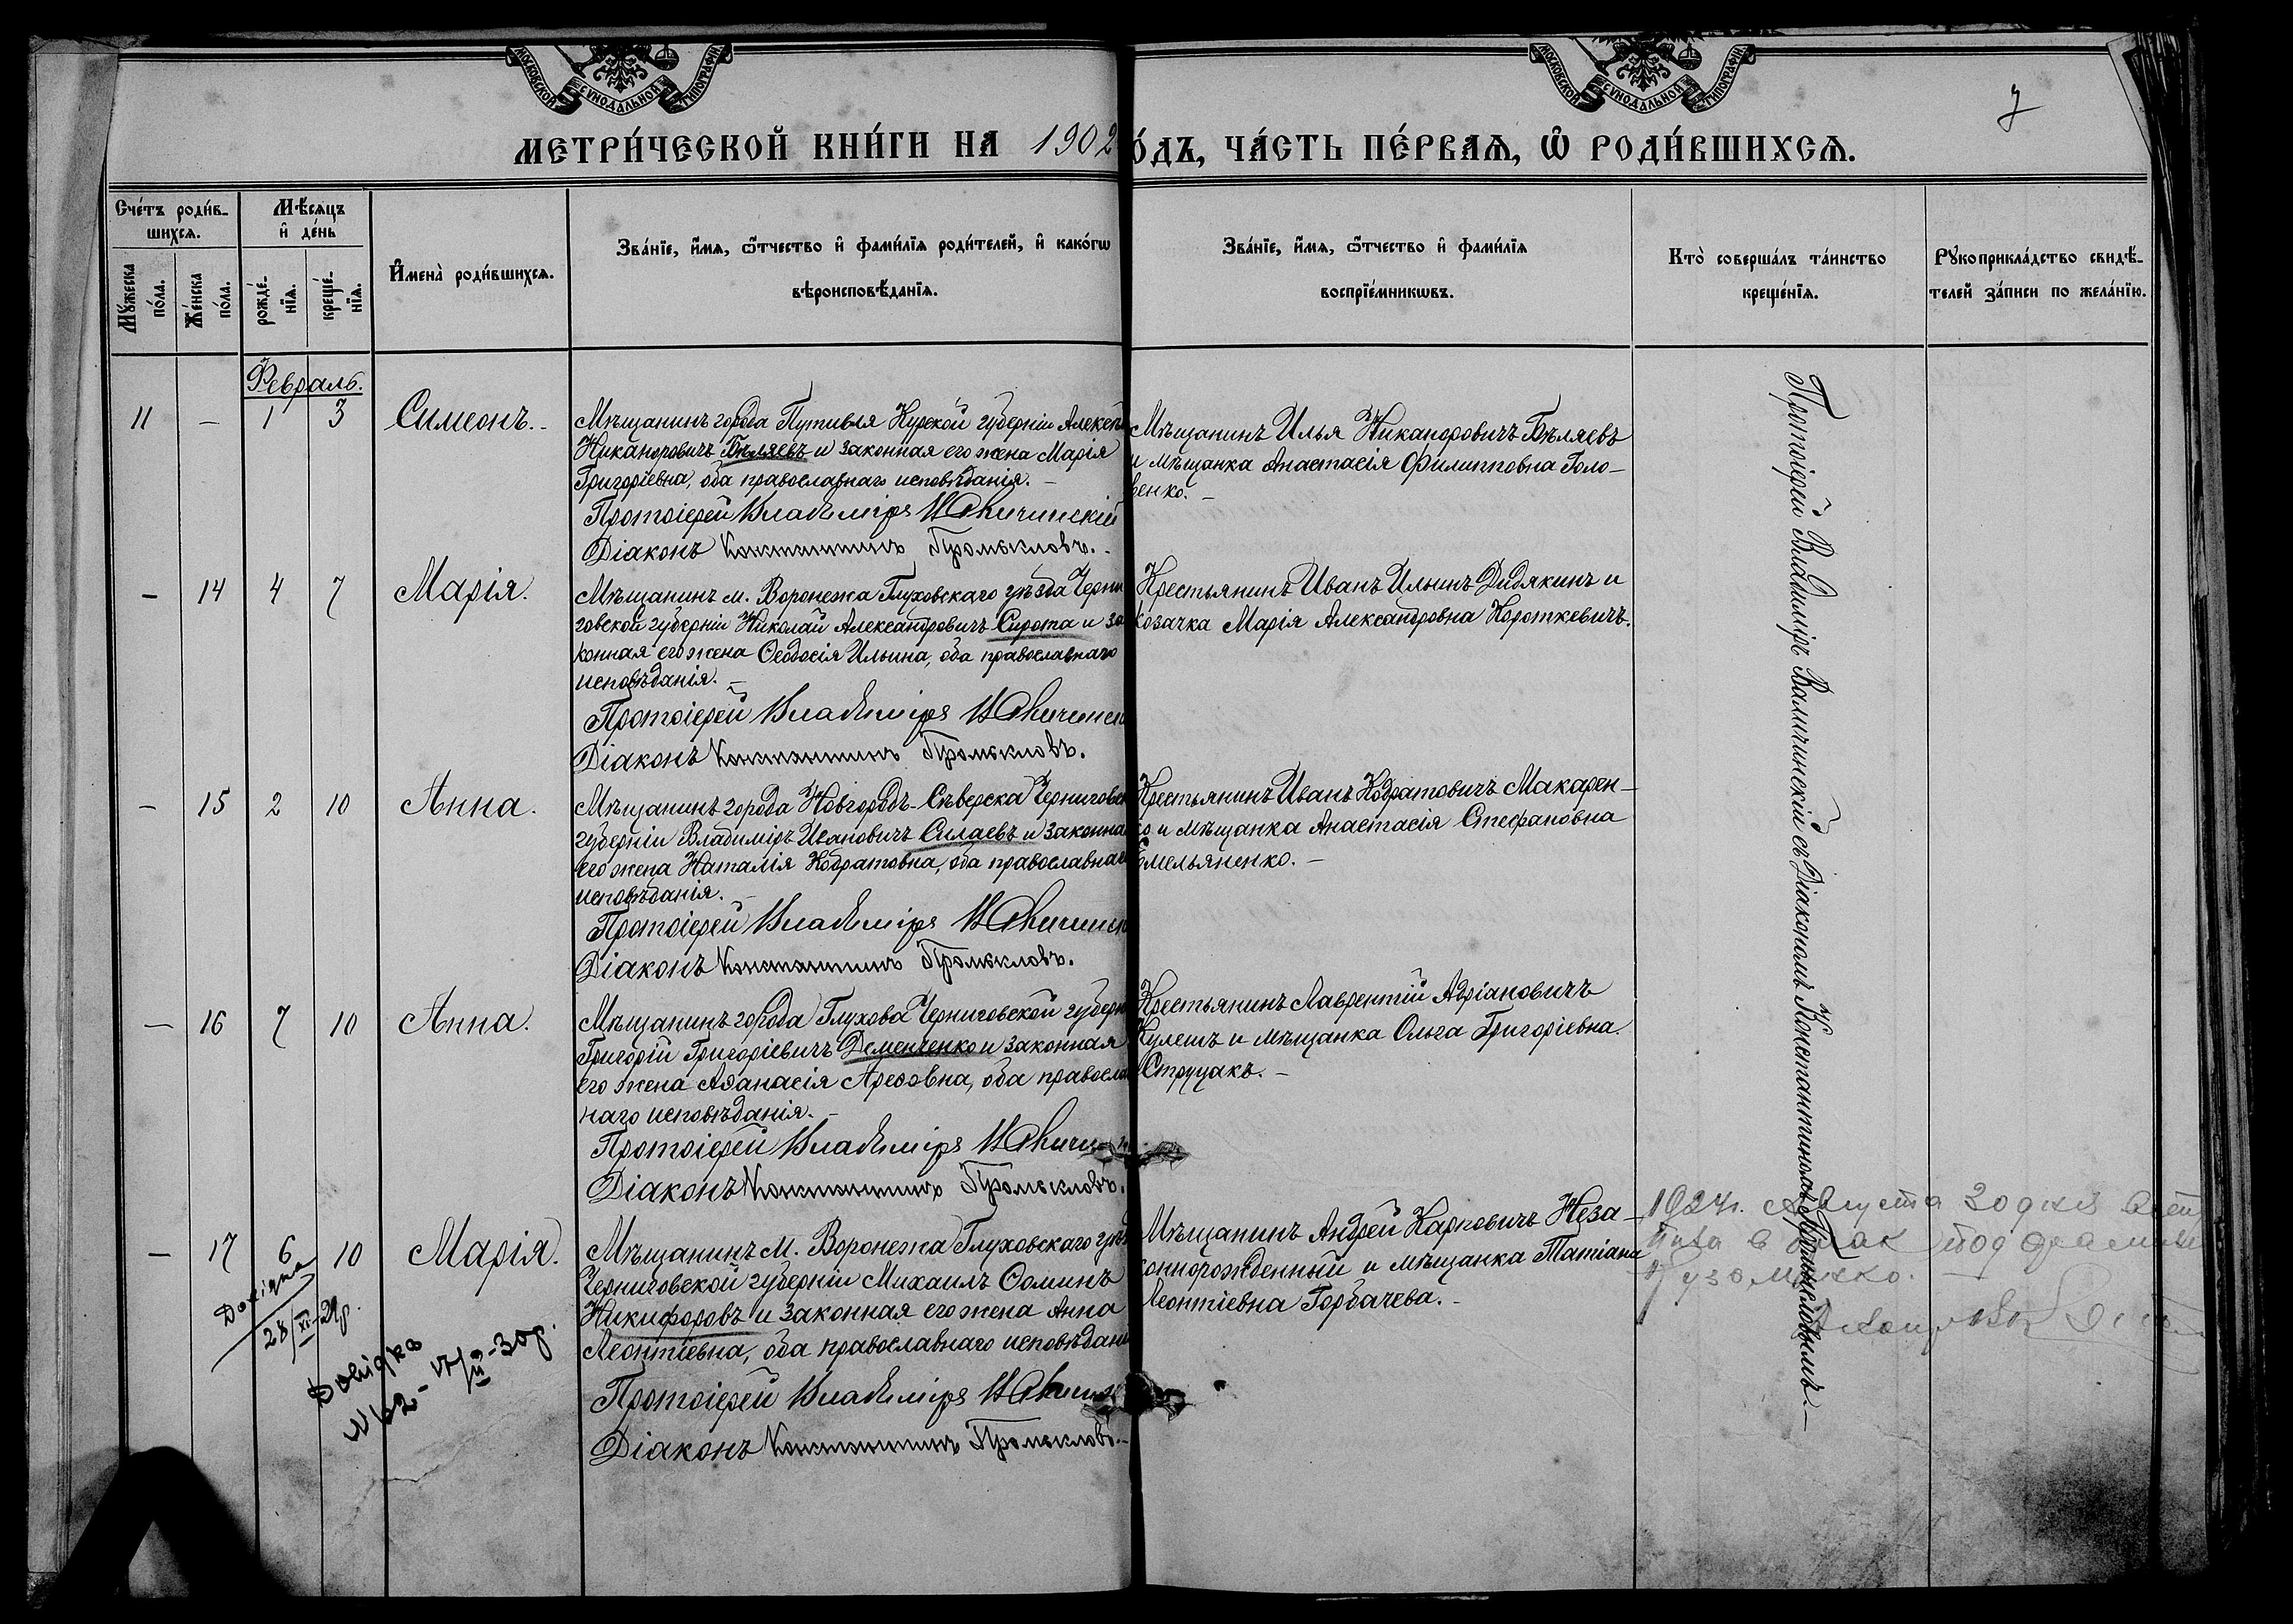 МОСКОВСКОЙ СѴНОДАЛЬНОЙ ТИПОГРАФІИ
МОСКОВСКОЙ СѴНОДАЛЬНОЙ ТИПОГРАФІИ
7
МЕТРИ́ЧЕСКОЙ КНИ́ГИ НА 1902
О́ДЪ, ЧА́СТЬ ПЕ́РВАѦ, Ѡ҆ РОДИ́ВШИХСѦ.
Сче́тъ роди́в-
шихсѧ.
Мѣ́сѧцъ
и҆ де́нь
Мꙋ́жеска
по́ла.
Же́нска
по́ла.
рожде́-
нїѧ.
креще́-
нїѧ.
И҆мена̀ роди́вшихсѧ.
Зва́нїе, и҆́мѧ, ѻ҆́тчество и҆ фами́лїѧ роди́телей, и҆ како́гѡ
вѣроисповѣ́данїѧ.
Зва́нїе, и҆́мѧ, ѻ҆́тчество и҆ фами́лїѧ
воспрїе́мникѡвъ.
Кто̀ соверша́лъ та́инство
креще́нїѧ.
Рꙋкоприкла́дство свидѣ́-
телей за́писи по жела́нїю.
Февраль.
11 - 1 3 Симеонъ.
Мѣщанинъ города Путивля Курской губерніи Алексѣй
Никаноровичъ Бѣляевъ и законная его жена Марія
Григоріевна, оба православнаго исповѣданія.
Протоіерей Владиміръ
Діаконъ Константинъ Промысловъ.
Мѣщанинъ Илья Никаноровичъ Бѣляевъ
и мѣщанка Анастасія Филипповна Голо-
венко.
- 14 4 7 Марія.
Мѣщанинъ м. Воронежа Глуховскаго уѣзда Черни
говской губерніи Николай Александровичъ Сирота и за
конная его жена Ѳеодосія Ильина, оба православнаго
исповѣданія.
Протоіерей Владиміръ
Діаконъ Константинъ Промысловъ.
Крестьянинъ Иванъ Ильинъ Дидякинъ и
козачка Марія Александровна Короткевичъ.
- 15 2 10 Анна.
Мѣщанинъ города Новгородъ-Сѣверска Черниговск
губерніи Владиміръ Ивановичъ Силаевъ и законна
его жена Наталія Кодратовна, оба православнаго
исповѣданія.
Протоіерей Владиміръ
Діаконъ Константинъ Промысловъ.
Крестьянинъ Иванъ Кодратовичъ Макарен-
ко и мѣщанка Анастасія Стефановна
Омельяненко.
- 16 7 10 Анна.
Мѣщанинъ города Глухова Черниговской губерн
Григорій Григоріевичъ Деменченко и законная
его жена Аѳанасія Ареѳовна, оба правосла
наго исповѣданія.
Протоіерей Владиміръ
Діаконъ Константинъ Промысловъ.
Крестьянинъ Лаврентій Адріановичъ
Кулешъ и мѣщанка Ольга Григоріевна
Струцакъ.
- 17 6 10 Марія.
Мѣщанинъ м. Воронежа Глуховскаго уѣз
Черниговской губерніи Михаилъ Ѳоминъ
Никифоровъ и законная его жена Анна
Леонтіевна, оба православнаго исповѣдані
Протоіерей Владиміръ
Діаконъ Константинъ Промысловъ.
Мѣщанинъ Андрей Карповичъ Неза-
коннорожденный и мѣщанка Татіана
Леонтіевна Горбачева.
Протоіерей Владиміръ Валичинскій съ Діакономъ Константиномъ Промысловымъ.
1924г. Августа 30 дня
в брак под
28/XI-29р.
Довідка
№62-17/II-30р.